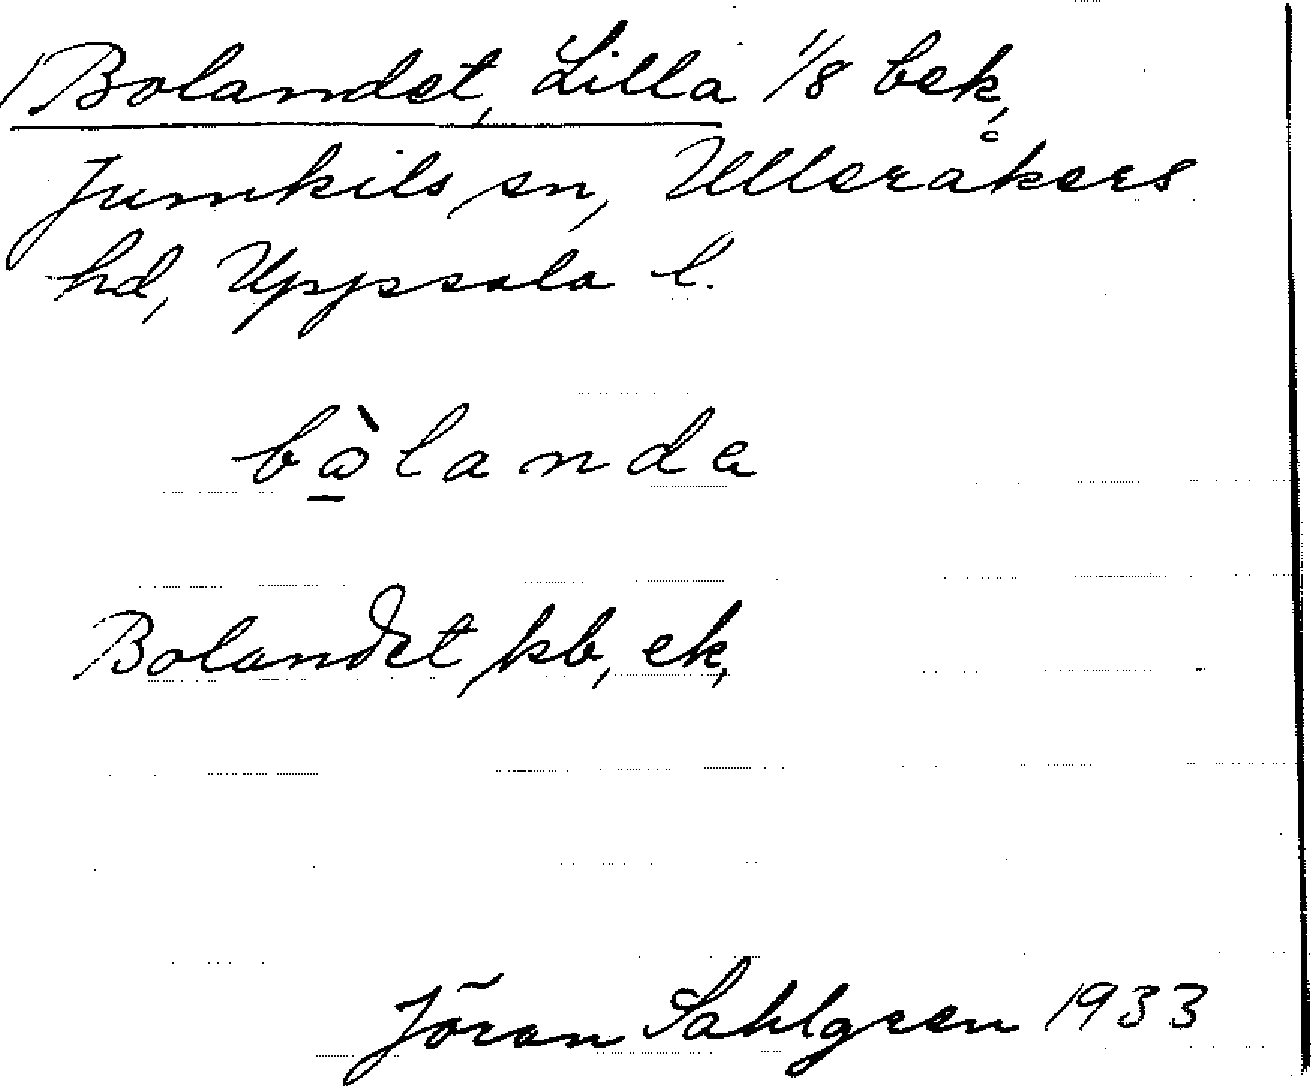 Bolandet, Lilla 1/8 bek,
Jumkils sn, Ulleråkers
hd, Uppsala l.
bὼ̱landa
Bolandet kb, ek,
Jöran Sahlgren 1933